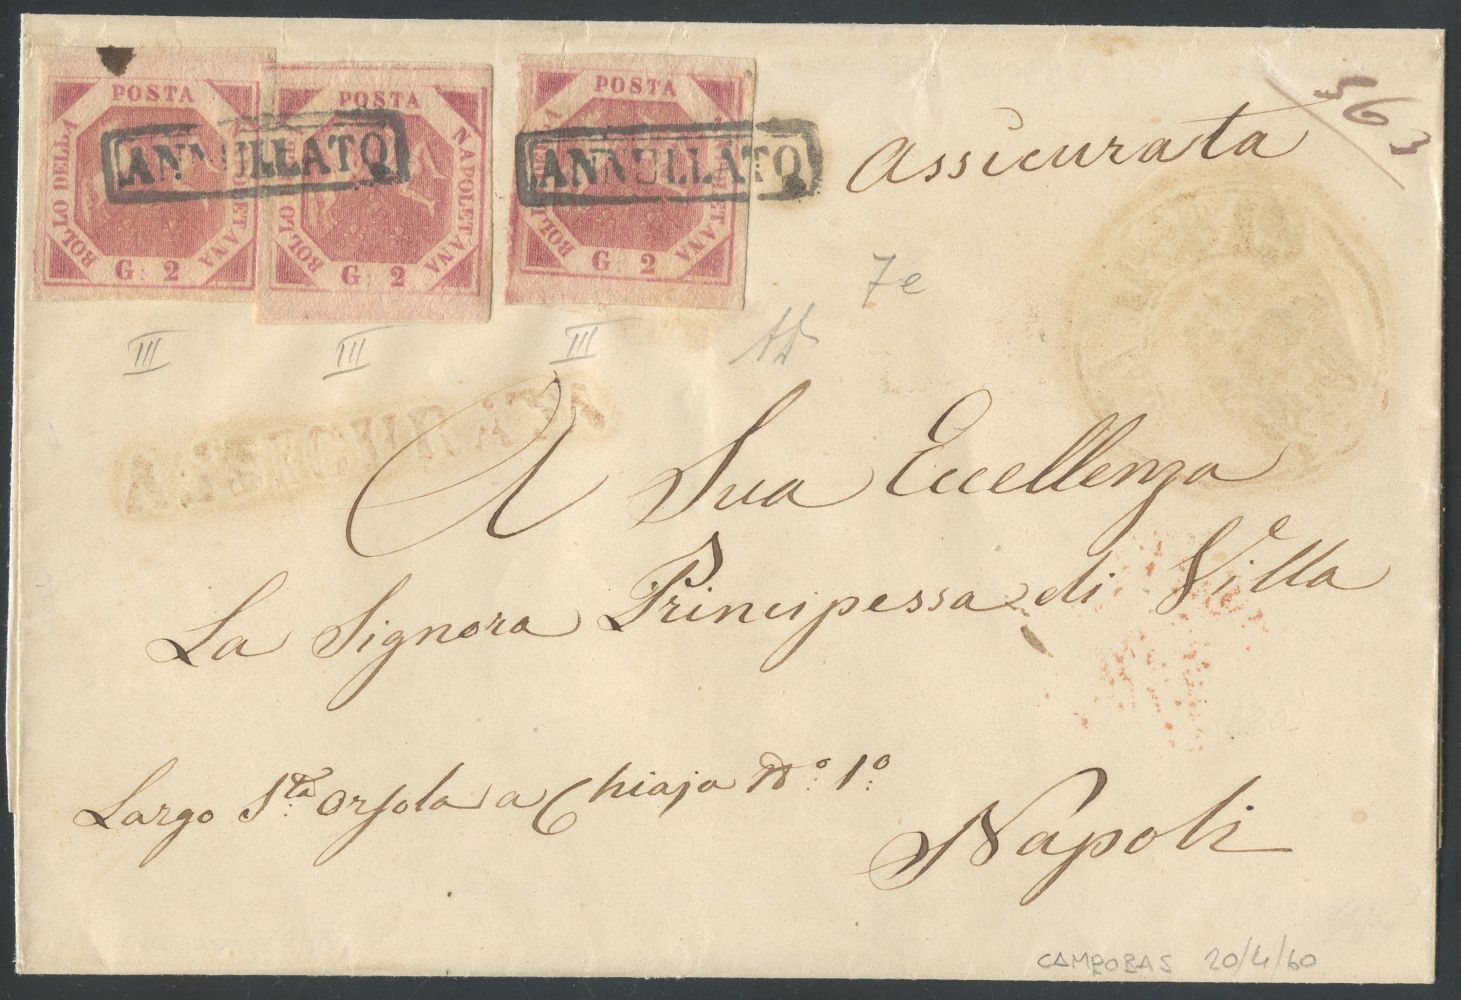 POSTA POSTA POSTA
BOLLO DELLA NAPOLETANA
BOLLO NAPOLETANA
G. 2 G. 2 G. 2
ANNULLATO ANNULLATO
Assicurata
563
7e
III III III
A Sua Eccellenza
La Signora Principessa di Villa
Largo S.ta Orsola a Chiaja No. 1o.
Napoli
CAMPOBAS 20/4/60